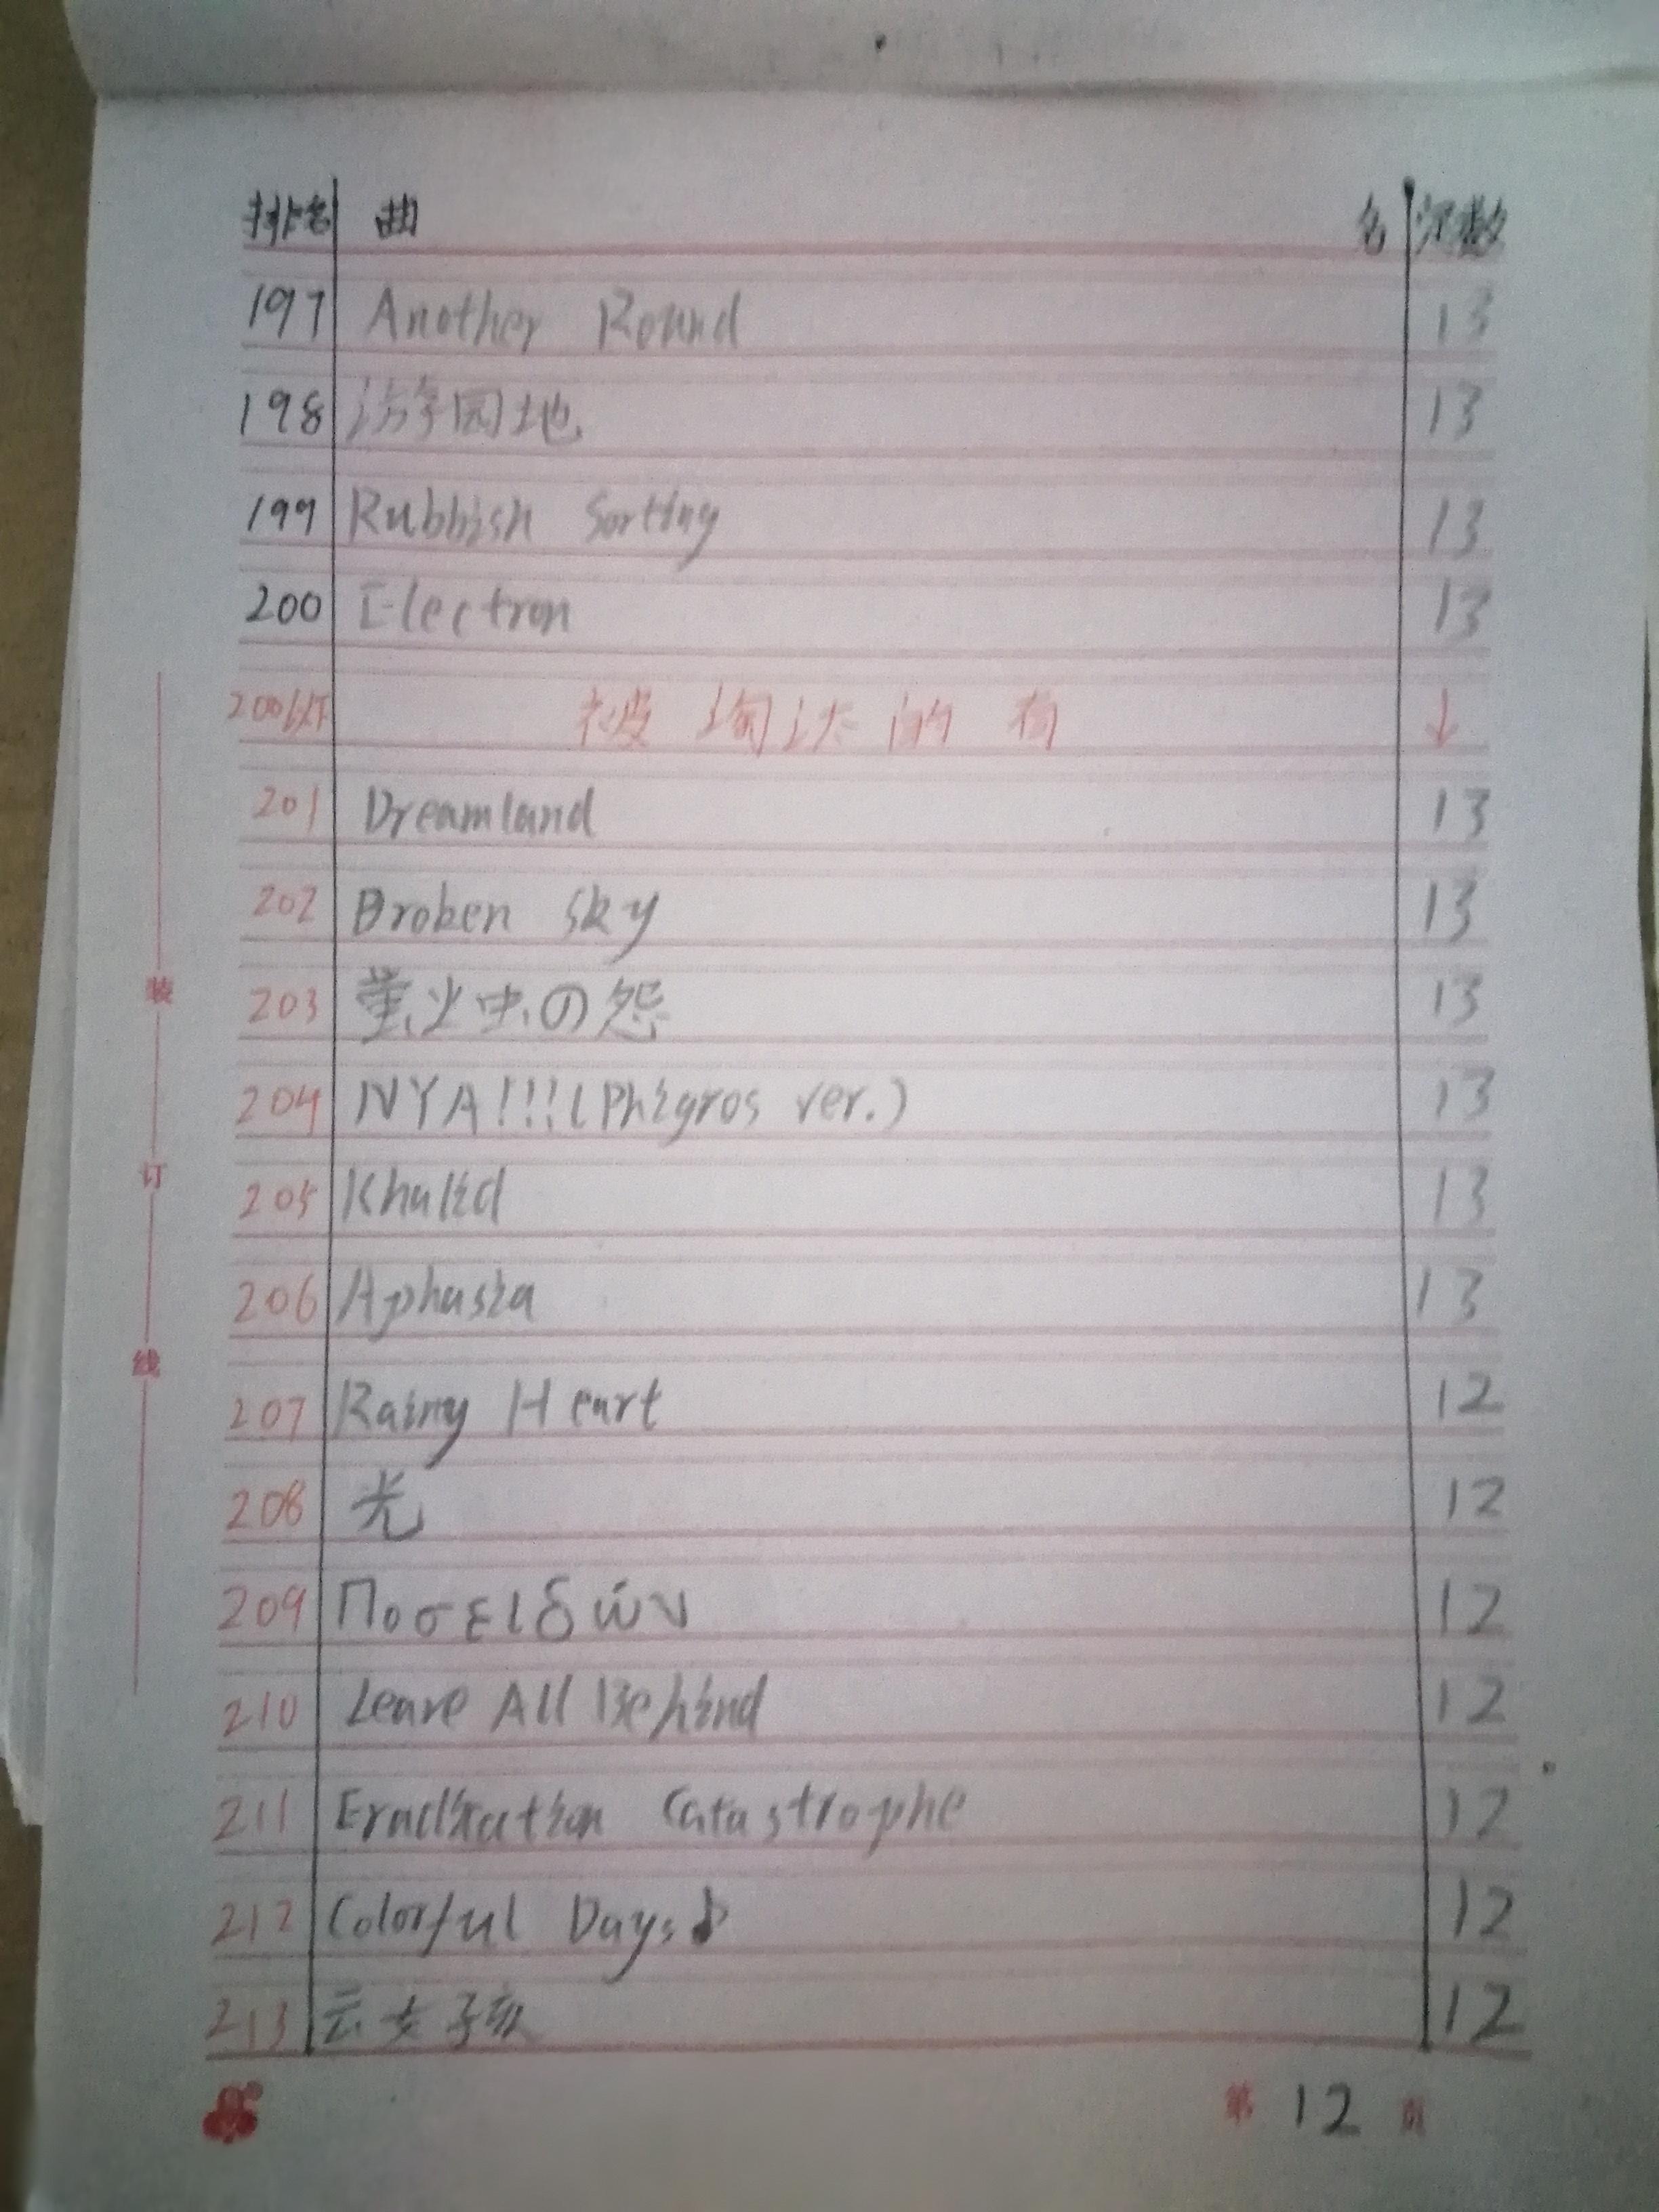 排名 曲 名 次数
197 Another Round 13
198 游学园地 13
199 Rubbish Sorting 13
200 Electron 13
200以下 被淘汰的 ↓
201 Dreamland 13
202 Broken Sky 13
203 萤火虫の怨 13
204 NYA!!!(Phigros ver.) 13
205 Khalid 13
206 Aphasia 13
207 Rainy Heart 12
208 光 12
209 Ποσειδών 12
210 Leave All Behind 12
211 Eradication Catastrophe 12
212 Colorful Days♪ 12
213 云女孩 12
装
订
线
第 12 页